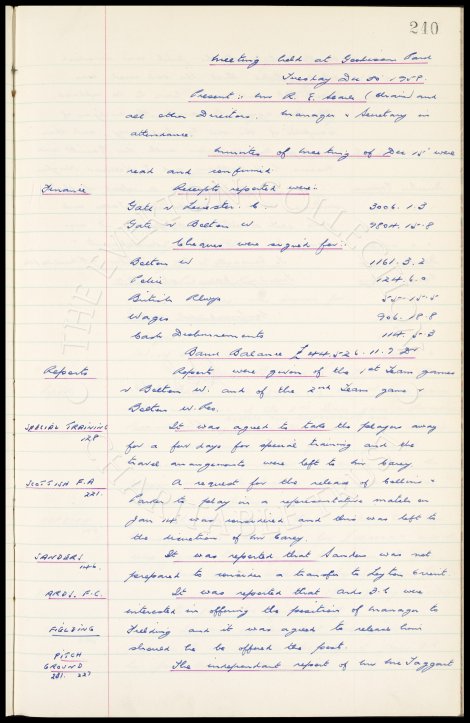 240
Meeting held at Goodison Park
Tuesday Dec 30 1958.
Present: Mr R. E. Searle (Chair) and
all other Directors. Manager & Secretary in
attendance.
Minutes of Meeting of Dec 15 were
read and confirmed
Finance Receipts reported were:
Gate v Leicester C 3006. 1. 3
Gate v Bolton W 9804. 15. 8
Cheques were signed for:
Bolton W 1161. 3. 2
Police 124. 6. 0
British Rlwys 55. 15. 5
Wages 906. 18. 8
Cash Disbursements 114. 5. 3
Bank Balance £44,526. 11. 7 Dr
Reports Reports were given of the 1st Team games
v Bolton W. and of the 2nd Team game v
Bolton W. Res.
SPECIAL TRAINING It was agreed to take the players away
128 for a few days for special training and the
travel arrangements were left to Mr Carey
SCOTTISH F.A A request for the release of Collins &
221. Parker to play in a representative match on
Jan 14 was considered and this was left to
the discretion of Mr Carey.
SANDERS It was reported that Sanders was not
146. prepared to consider a transfer to Leyton Orient.
ARDS. F.C. It was reported that Ards F.C were
interested in offering the position of manager to
FIELDING Fielding and it was agreed to release him
should he be offered the post.
PITCH
GROUND The independant report of Mr McTaggart
221. 227
THE EVERTON COLLECTION
CHARITABLE TRUST